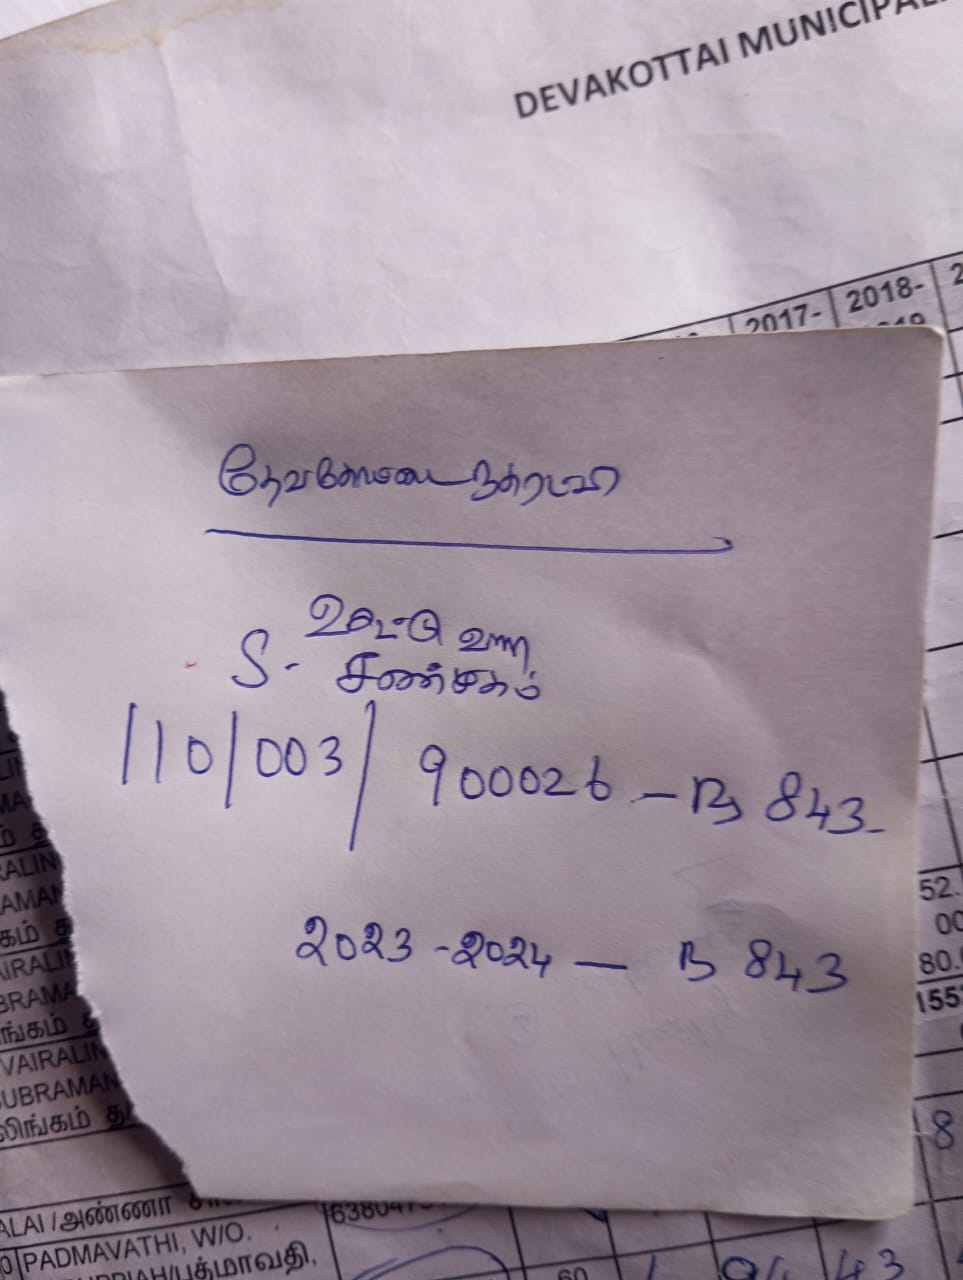 DEVAKOTTAI MUNICIPAL
2017-
2018-
2
019
தேவகோட்டை நகராட்சி
S- சண்முகம்
110/003/900026 - ரூ 843-
2023-2024 - ரூ 843
52.
00
80.
155
RALIN
AMAN
கம் த
AIRALIN
BRAMA
ங்கம் த
VAIRALIN
SUBRAMAN
லிங்கம் த
8
ALAI/அண்ணா
63804
0 PADMAVATHI, W/O.
RIAH/பத்மாவதி,
60
43